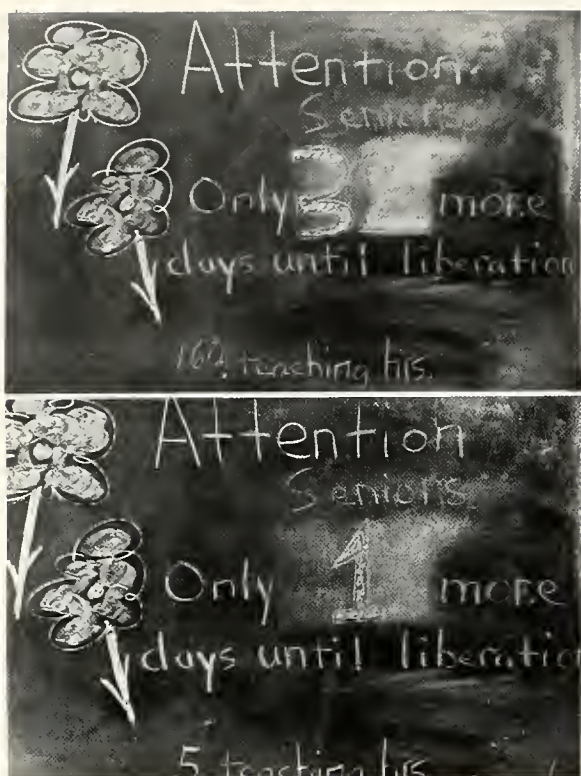 Attention
Seniors
Only 32 more
days until liberation
160 teaching hrs.
Attention
Seniors
Only 1 more
days until liberation
5 teaching hrs